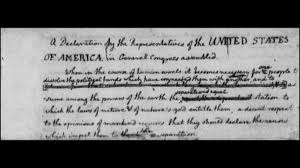 A Declaration by the Representatives of the UNITED STATES
OF AMERICA, in General Congress assembled.
When in the course of human events it becomes necessary for one people to
dissolve the political bands which have connected them with another, and to
-sume among the powers of the earth the separate and equal station to
which the laws of nature & of nature's god entitle them, a decent respect
to the opinions of mankind requires that they should declare the causes
which impel them to the separation.